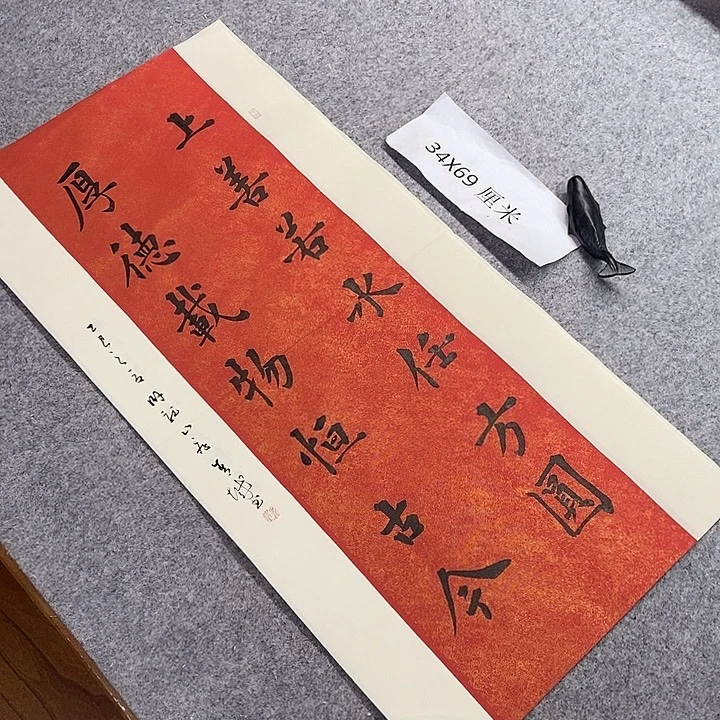 上善若水任方圓
厚德載物恒古今
乙巳
34X69 厘米